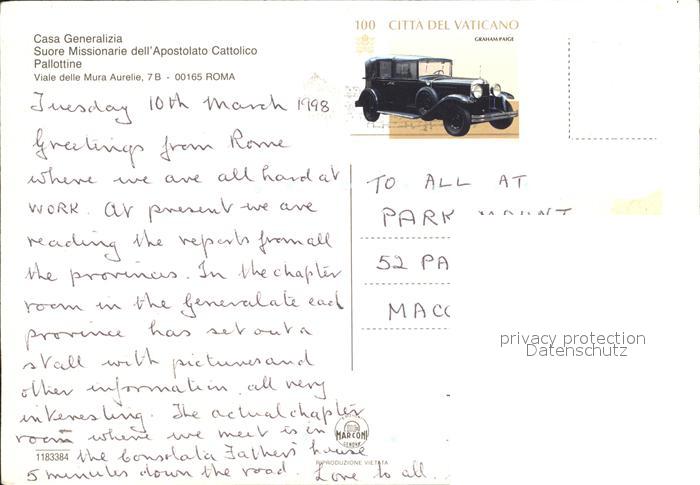 Casa Generalizia
Suore Missionarie dell'Apostolato Cattolico
Pallottine
Viale delle Mura Aurelie, 7B - 00165 ROMA
100 CITTÀ DEL VATICANO
GRAHAM PAIGE
Tuesday 10th March 1998
Greetings from Rome
where we are all hard at
WORK. At present we are
reading the reports from all
the provinces. In the chapter
room in the Generalate each
province has set out a
stall with pictures and
other information. all very
interesting. The actual chapter
room where we meet is in
the Consolata Fathers' house
5 minutes down the road. Love to all.
TO ALL AT
PARK MOUNT
52 PA
MACC
privacy protection
Datenschutz
MARCONI
GENOVA
1183384
RIPRODUZIONE VIETATA